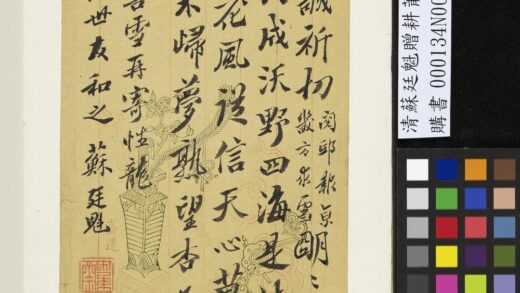 清蘇廷魁贈耕
購書 000134N00
誠祈切
閱邸報京
畿方求雪
成沃野四海是
花風從信天心
歸夢熟望杏
雪再寄性龍
世友和之 蘇廷魁